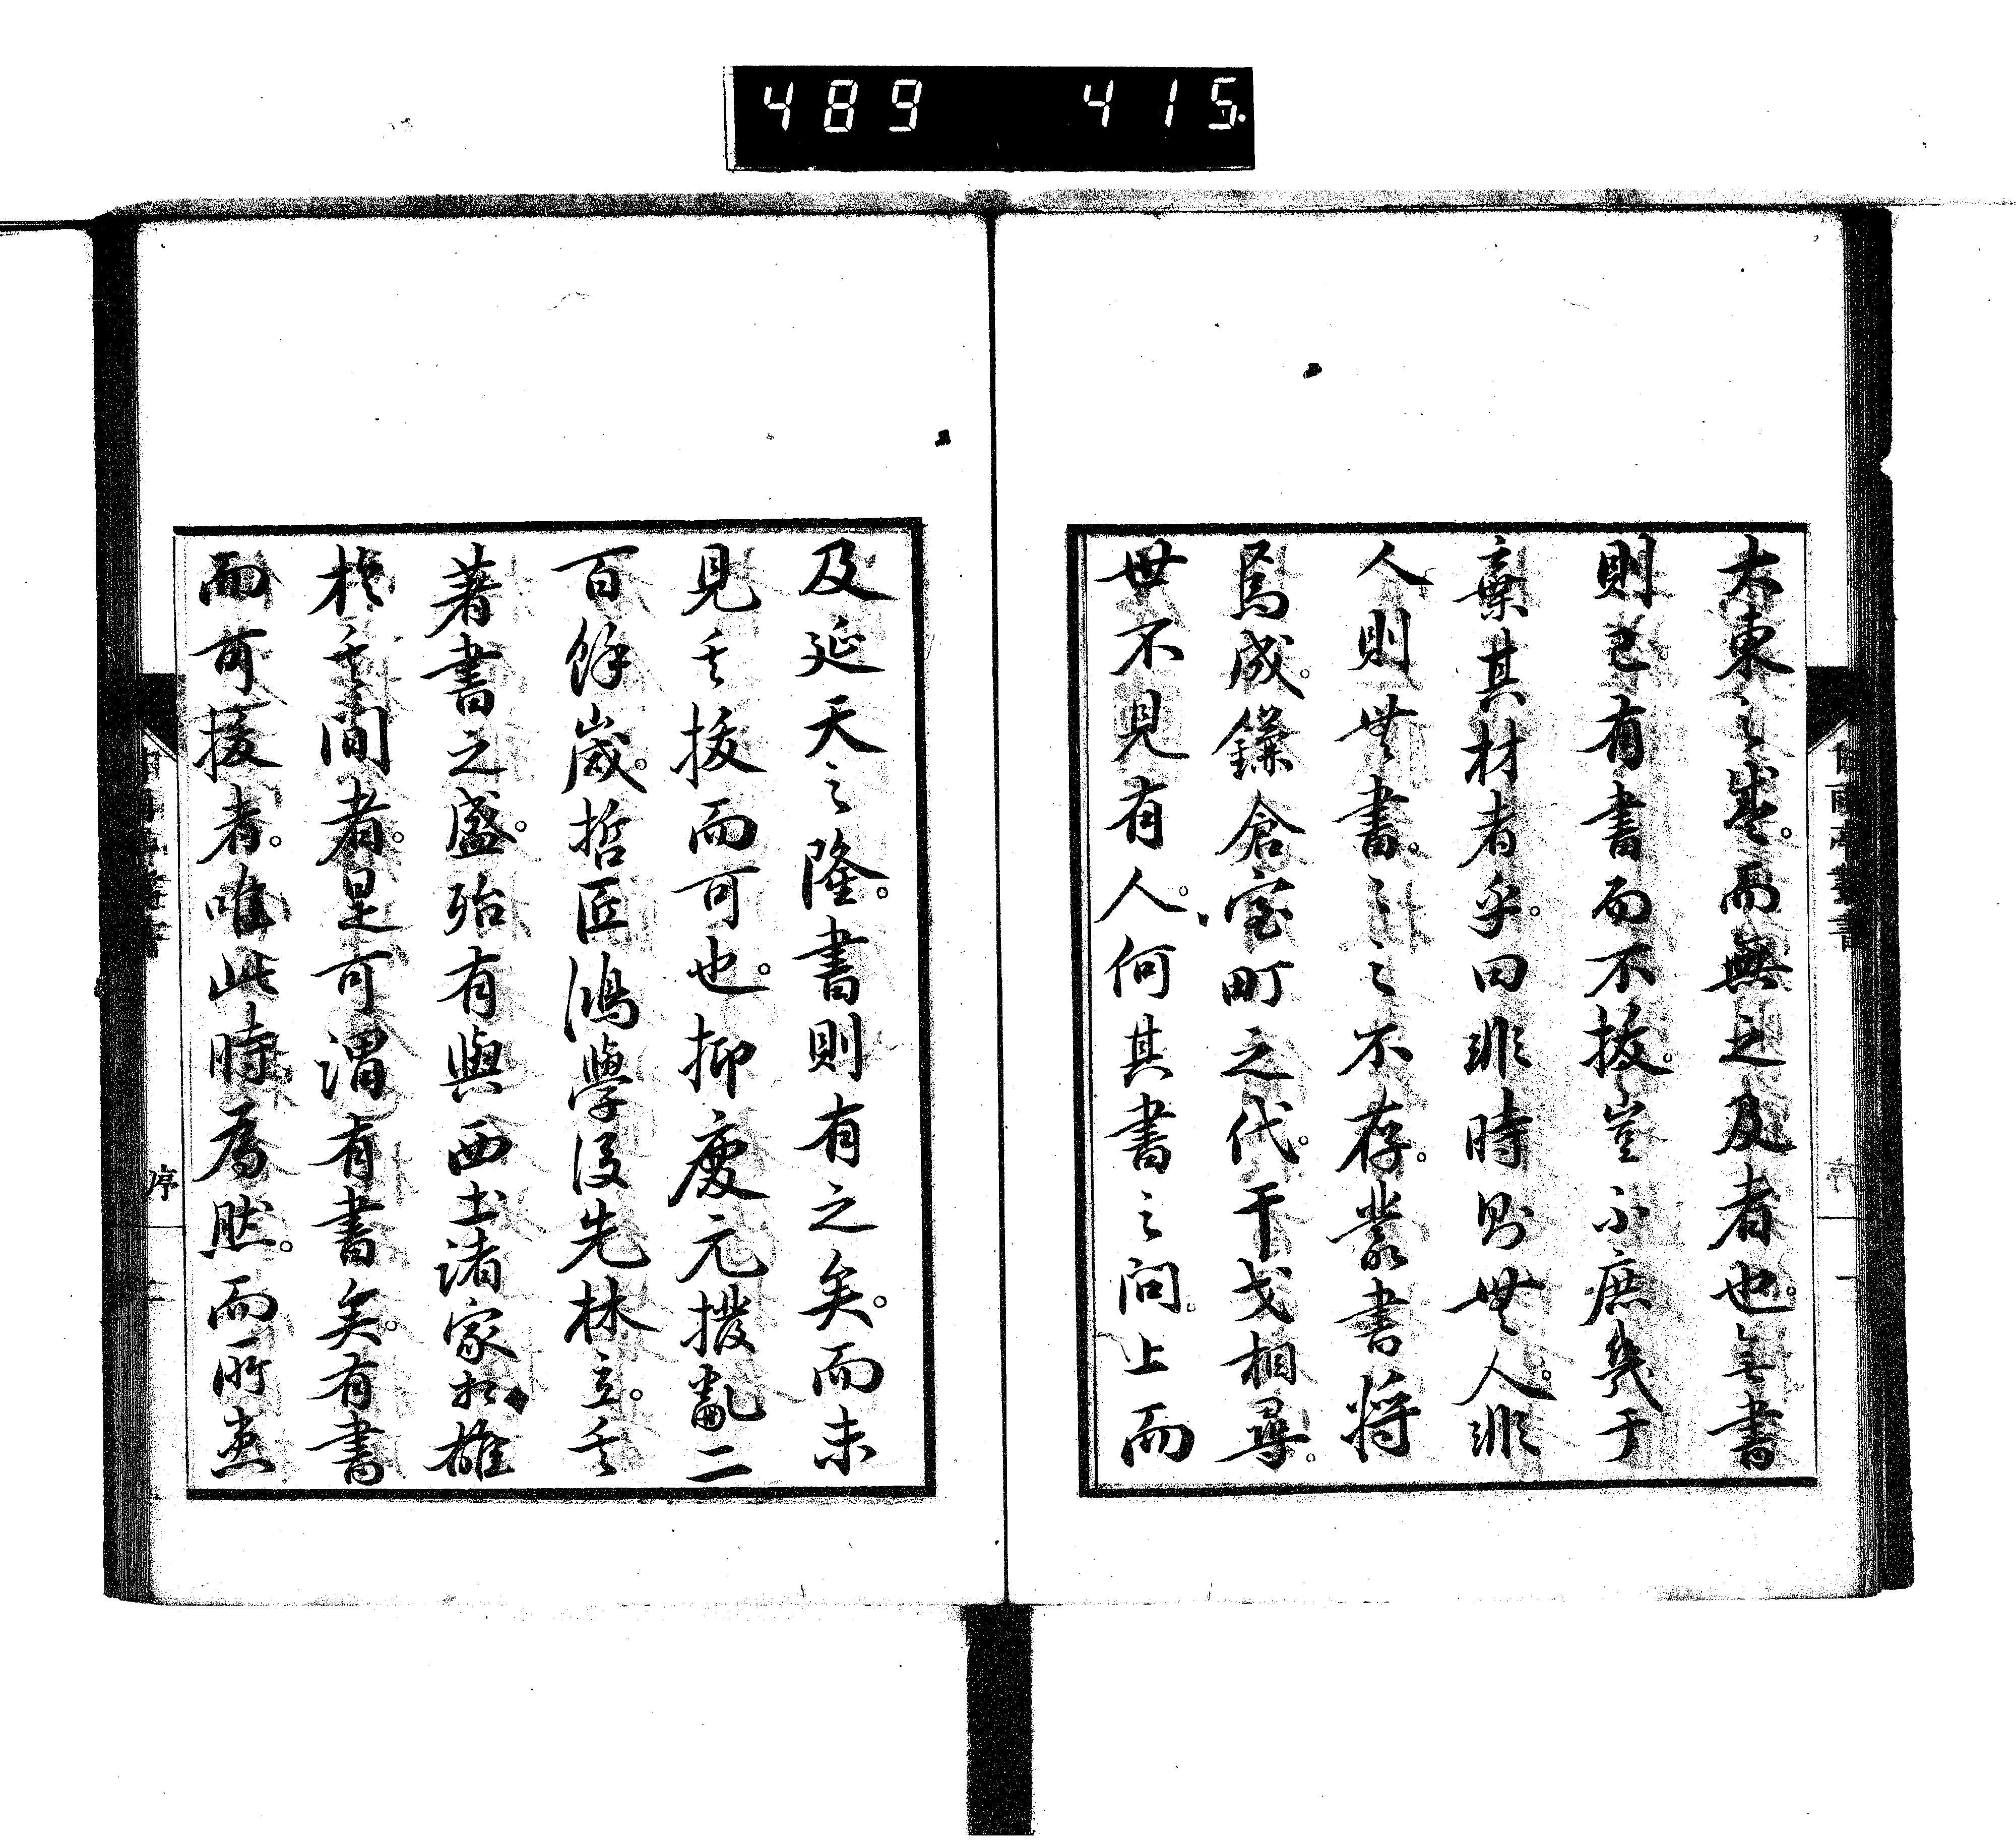 489 415.
大東之盛。而無之及者也。無書
則已。有書而不拔。豈不庶幾乎
棄其材者乎。曰非時則無人。非
人則無書。書之不存。叢書將
焉成。鎌倉室町之代。干戈相尋。
世不見有人。何其書之問。上而
及延天之隆。書則有之矣。而未
見其拔而可也。抑慶元撥亂二
百餘歲。哲匠鴻學後先林立。其
著書之盛。殆有與西土諸家相雄
於其間者。是可謂有書矣。有書
而可拔者。唯此時爲然。而所患
序